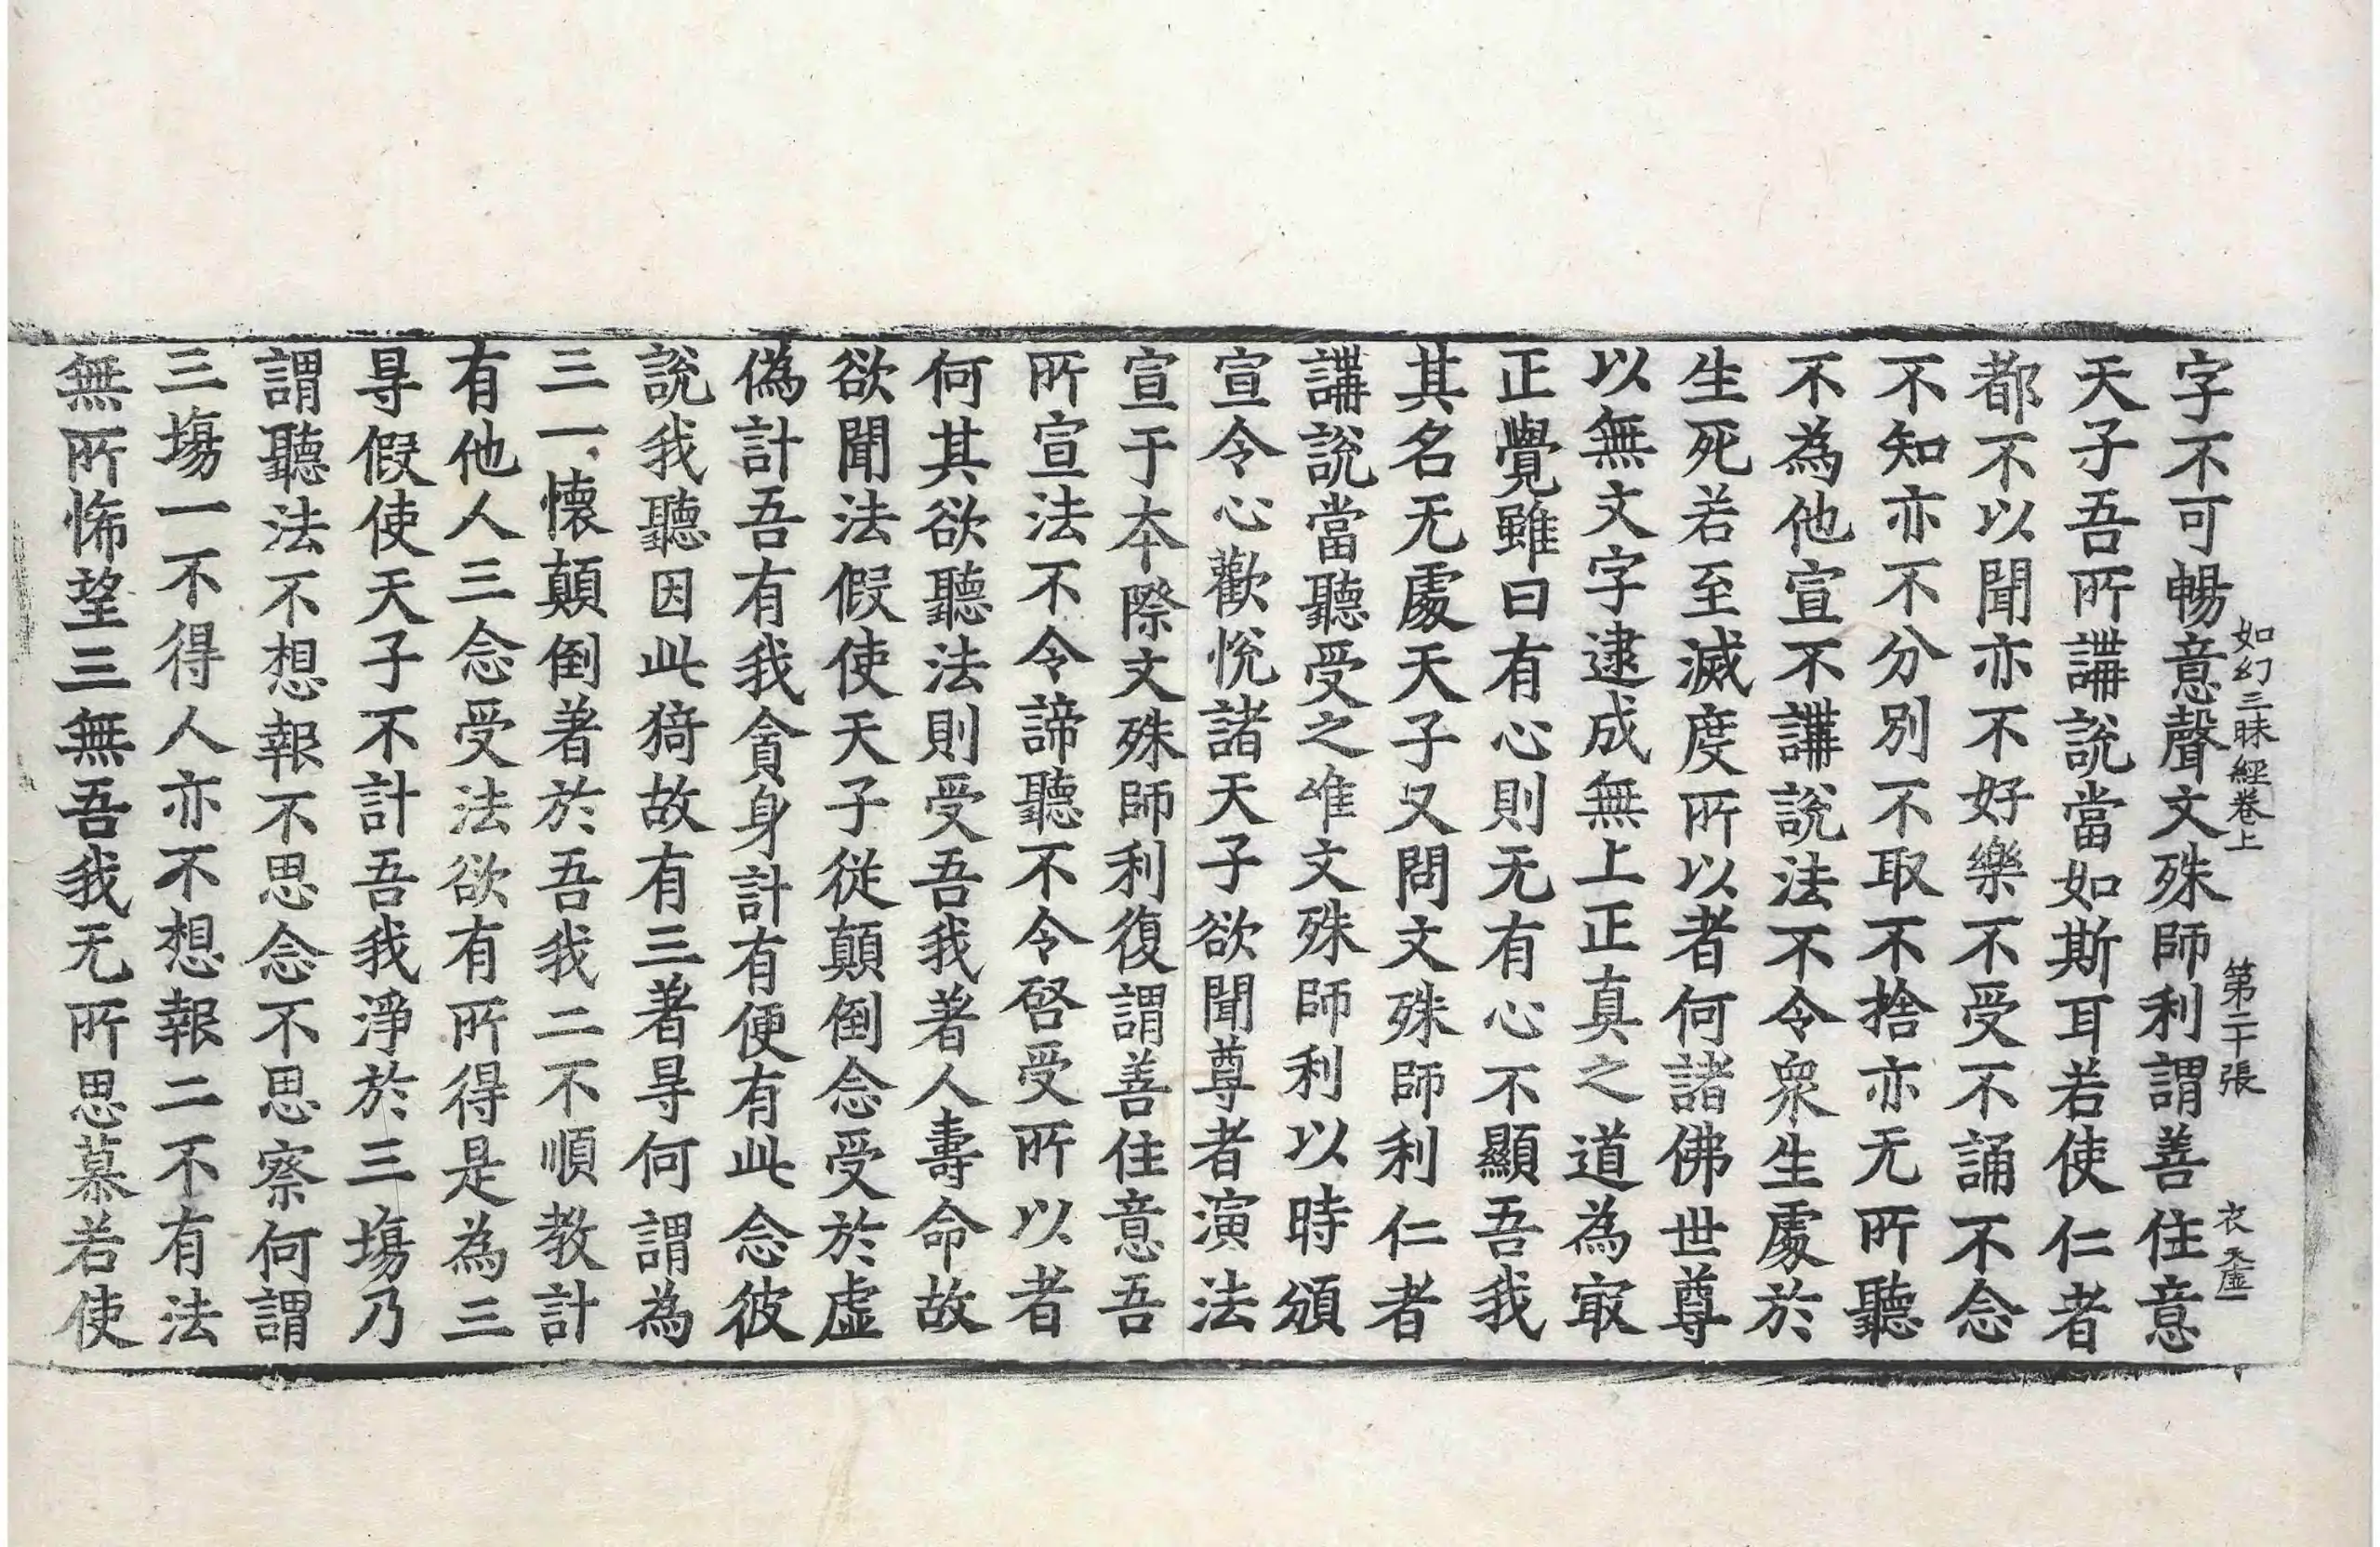 如幻三昧經卷上 第二十張 衣 天虛
字不可暢意聲文殊師利謂善住意
天子吾所講說當如斯耳若使仁者
都不以聞亦不好樂不受不誦不念
不知亦不分別不取不捨亦无所聽
不為他宣不講說法不令衆生處於
生死若至滅度所以者何諸佛世尊
以無文字逮成無上正真之道為㝡
正覺雖曰有心則无有心不顯吾我
其名无處天子又問文殊師利仁者
講說當聽受之唯文殊師利以時頒
宣令心歡悅諸天子欲聞尊者演法
宣于夲際文殊師利復謂善住意吾
所宣法不令諦聽不令啓受所以者
何其欲聽法則受吾我著人壽命故
欲聞法假使天子從顛倒念受於虛
偽計吾有我貪身計有便有此念彼
說我聽因此猗故有三著㝵何謂為
三一懷顛倒著於吾我二不順教計
有他人三念受法欲有所得是為三
㝵假使天子不計吾我淨於三塲乃
謂聽法不想報不思念不思察何謂
三塲一不得人亦不想報二不有法
無所悕望三無吾我无所思慕若使